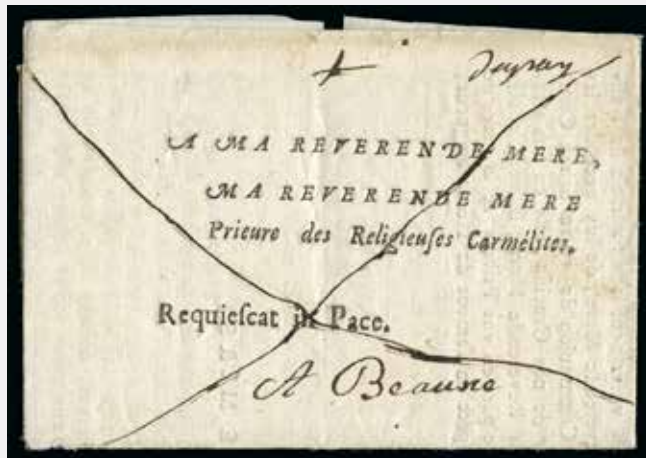 A MA REVERENDE MERE,
MA REVERENDE MERE
Prieure des Religieuſes Carmélites.
Requieſcat in Pace.
A Beaune